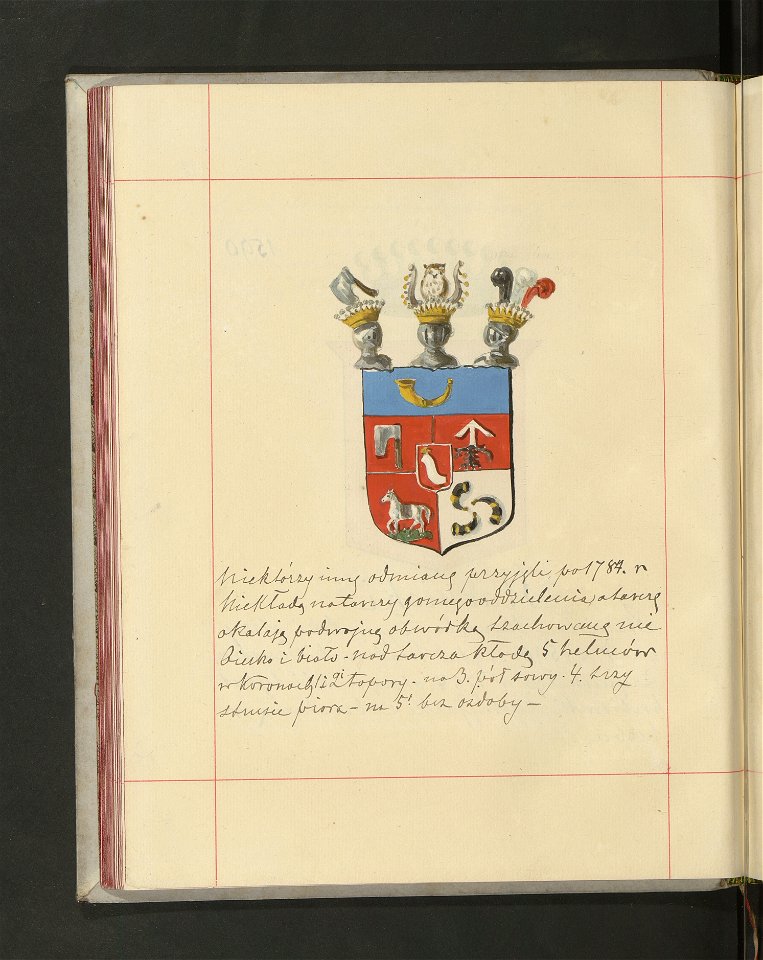 Niektórzy inną odmianę przyjęli po 1784. r
Niekładą na tarczy gornego oddzielenia, a tarczę
okalają podwójną obwódką szachowaną nie
biesko i biało - nad tarcza kładą 5 hełmów
w koronach, 1 i 2gi topory - na 3. pół sowy. 4. trzy
strusie piora - na 5t bez ozdoby -
1590